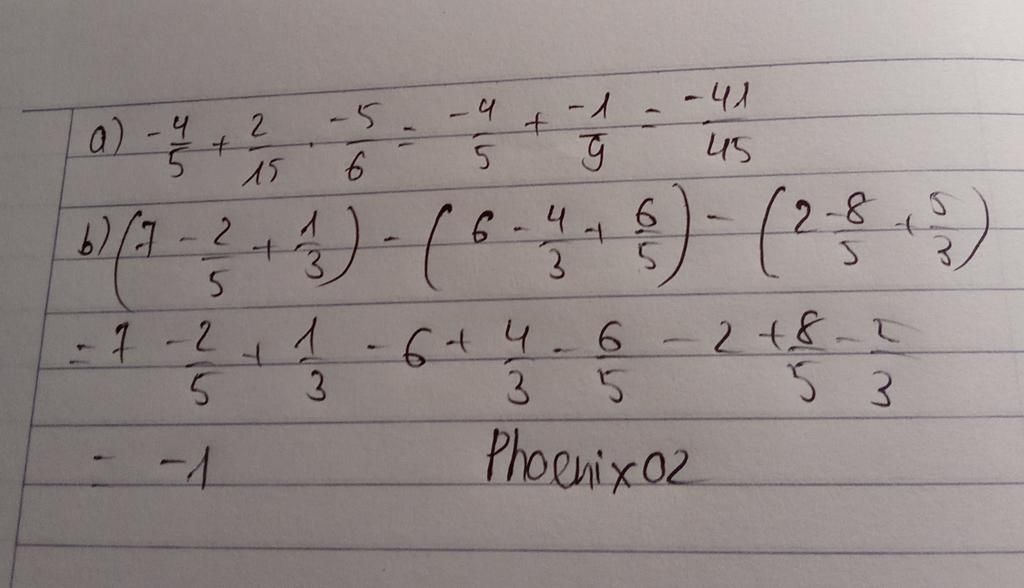 a) -4/5 + 2/15 . -5/6 = -4/5 + -1/9 = -41/45
b) (7 - 2/5 + 1/3) - (6 - 4/3 + 6/5) - (2 - 8/5 + 5/3)
= 7 - 2/5 + 1/3 - 6 + 4/3 - 6/5 - 2 + 8/5 - 5/3
= -1 Phoenix02